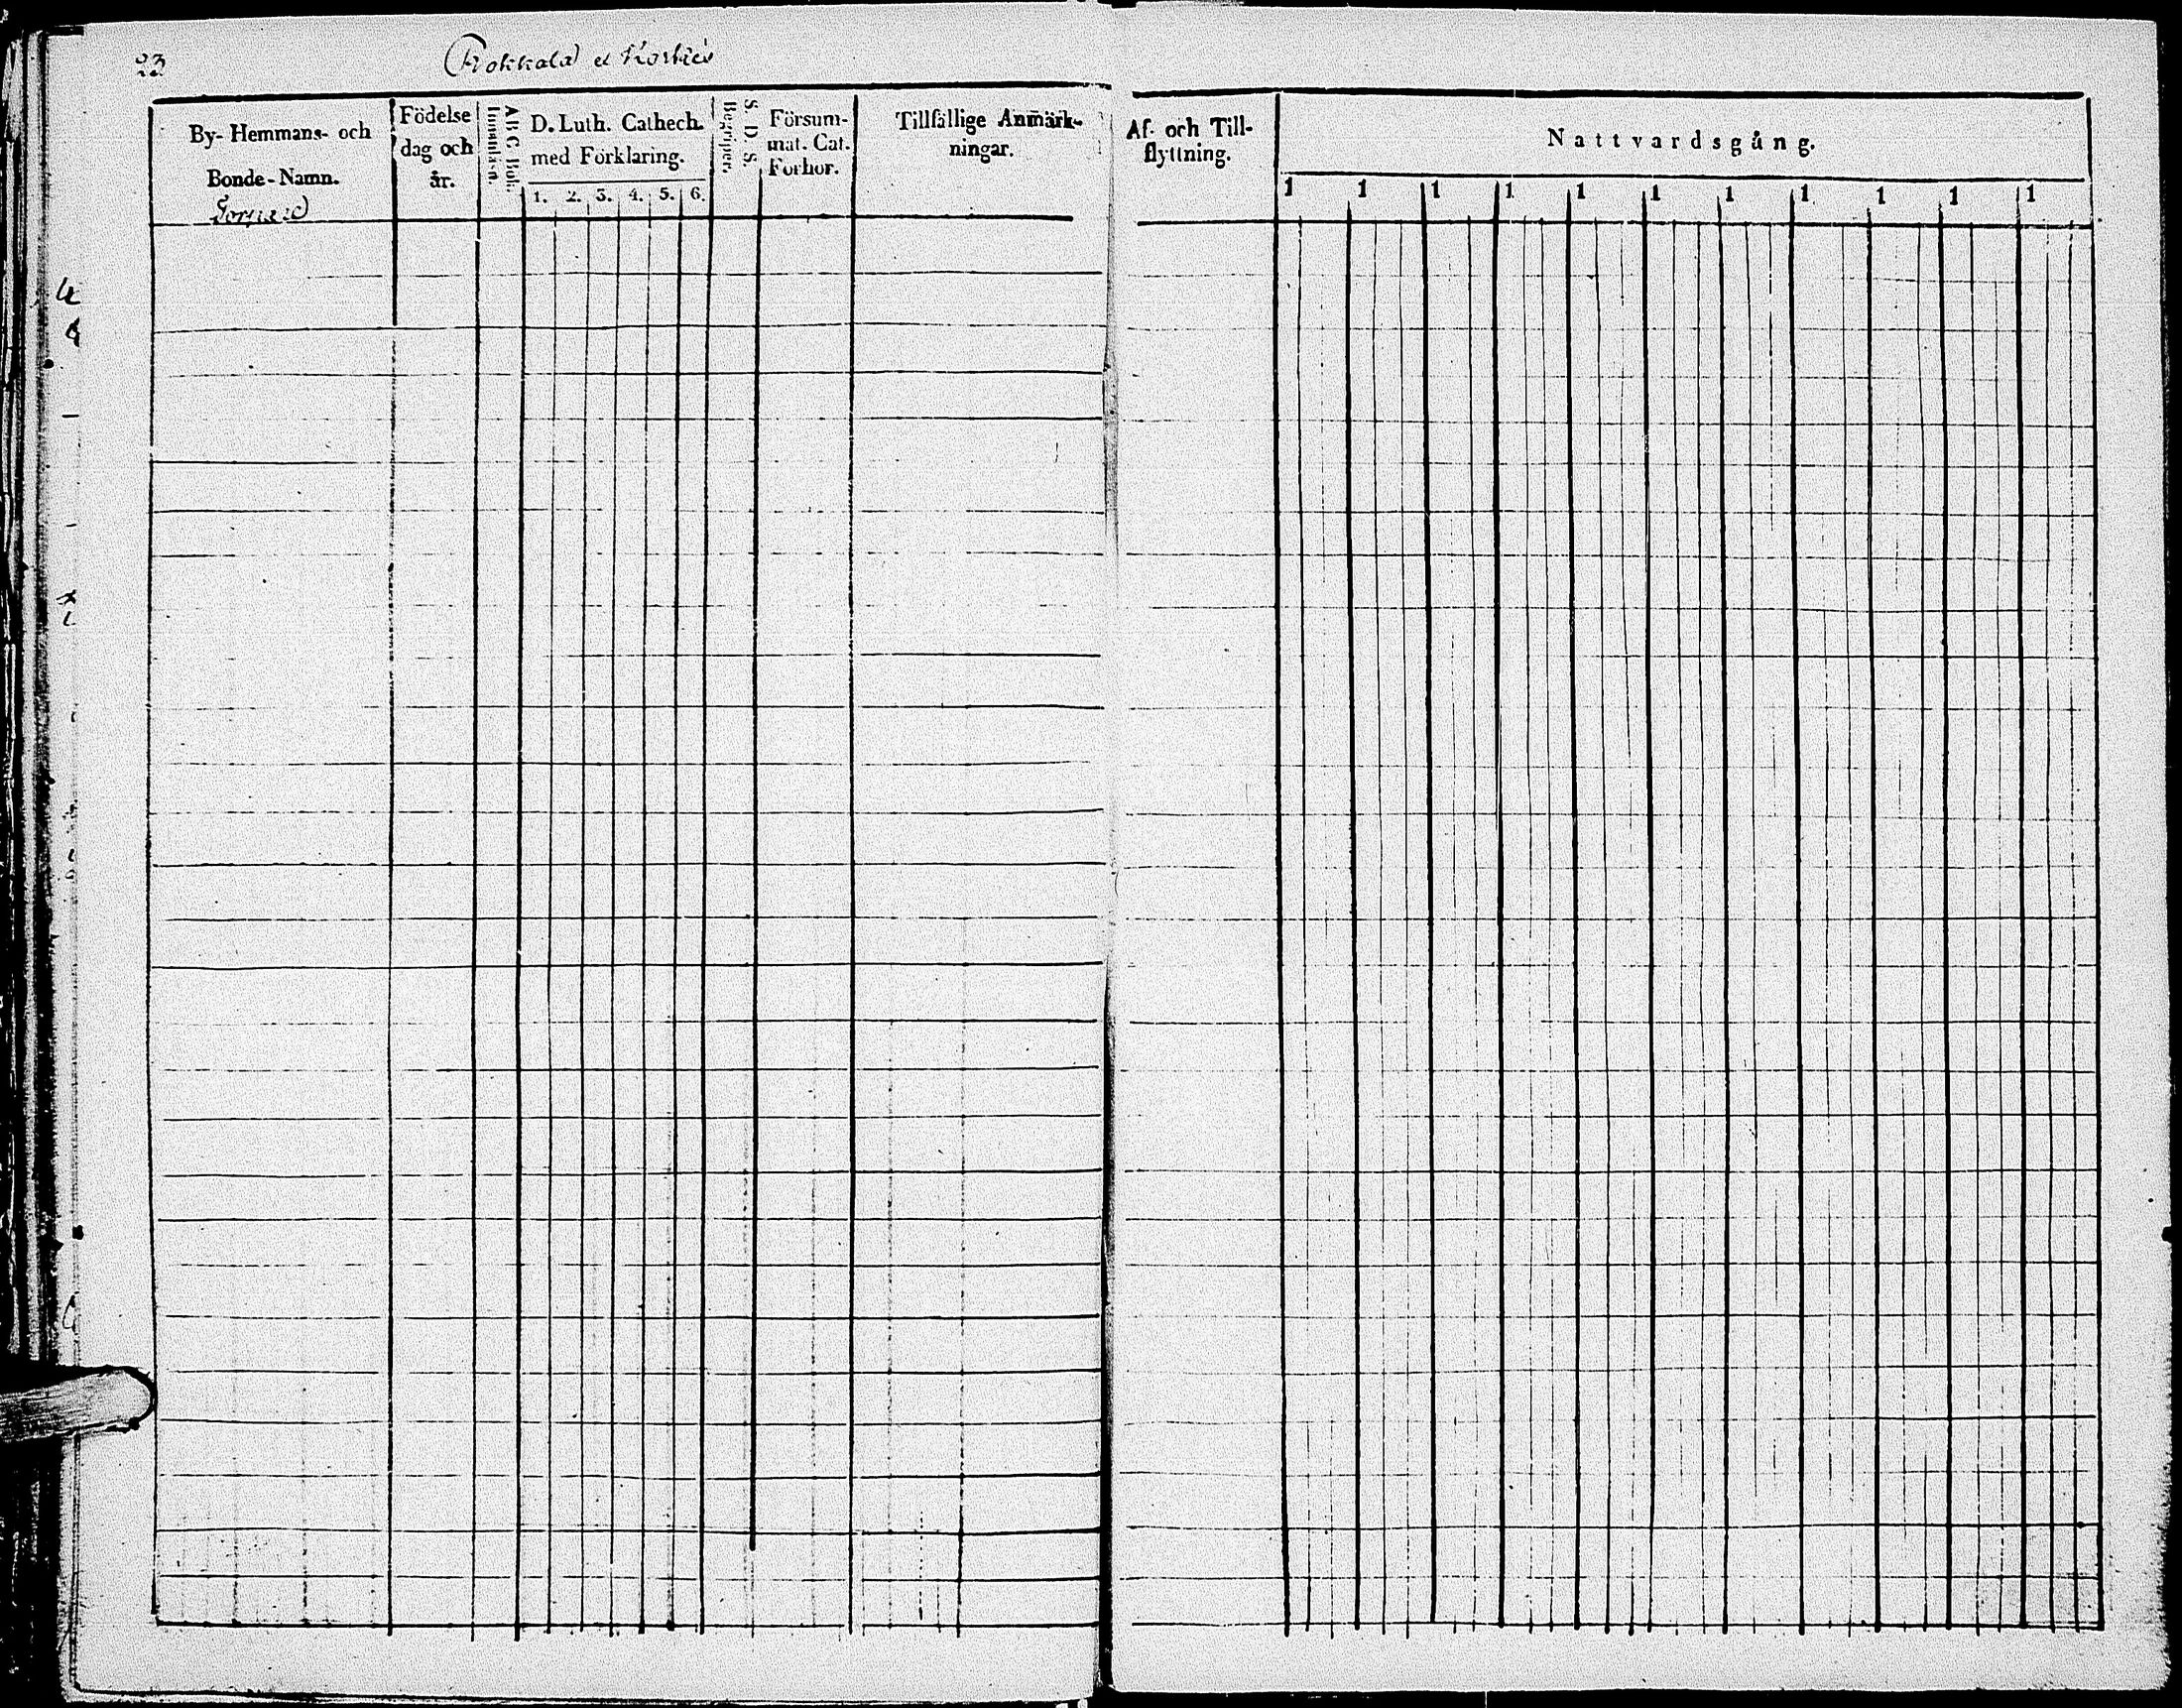 23
Rokkala et Kortiés
By- Hemmans- och
Bonde-Namn.
Födelse
dag och
år.
A B C Bok.
Innanläsn.
D. Luth. Cathech.
med Förklaring.
1. 2. 3. 4. 5. 6.
S. D. S.
Begriper.
Försum-
mat. Cat.
Förhör.
Tillfällige Anmärk-
ningar.
Af- och Till-
flyttning.
Nattvardsgång.
1 1 1 1 1 1 1 1 1 1 1